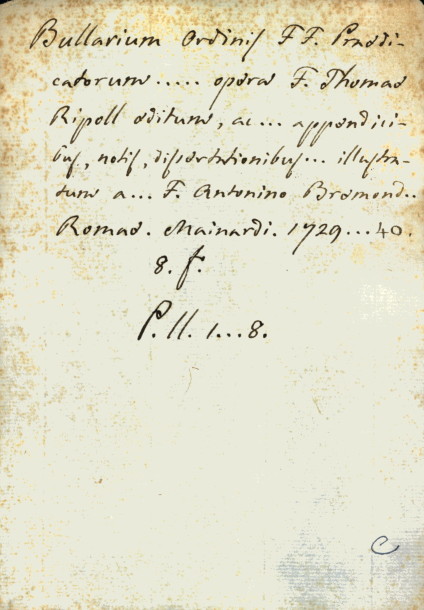 Bullarium Ordinis FF. Prædi-
catorum ..... opera F. Thomae
Ripoll editum, ac ... appendici-
bus, notis, dissertationibus ... illustra-
tum a ... F. Antonino Bremond ..
Romae. Mainardi. 1729 ... 40.
8. f.
P. ll. 1 ... 8.
C